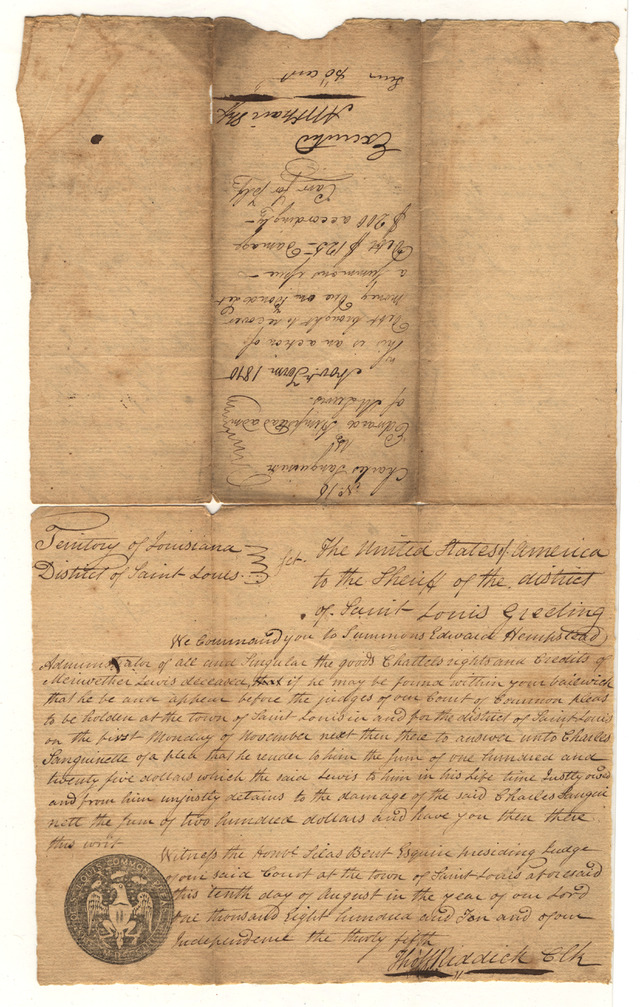 No 16
Charles Sanguinett
vs
Edward Hempstead adm
of M Lewis
Novr Term 1810
This is an action of
Debt brought to recover
money due on
a summons Issue
Debt $125 Damage
$200 accordingly
Carr for Plff
Executed
Shff
50 cent
Territory of Louisiana
District of Saint Louis
Sct.
The United States of America
to the Sheriff of the district
of Saint Louis Greeting
We Command you to Summons Edward Hempstead
Adminis ator of all and Singular the goods Chattels rights and Credits of
Meriwether Lewis deceased, if he may be found within your bailiwick
that he be and appear before the judges of our Court of Common pleas
to be holden at the town of Saint Louis in and for the district of Saint Louis
on the first Monday of November next then there to answer unto Charles
Sanguinette of a plea that he render to him the Sum of one hundred and
twenty five dollars which the said Lewis to him in his life time Justly owed
and from him unjustly detains to the damage of the said Charles Sangui
nett the Sum of two hundred dollars and have you then there
this writ
Witness the Honbl Silas Bent Esquire presiding Judge
of our said Court at the town of Saint Louis aforesaid
this tenth day of August in the year of our Lord
one thousand Eight hundred and Ten and of our
Independence the thirty fifth
Thos F Riddick Clk